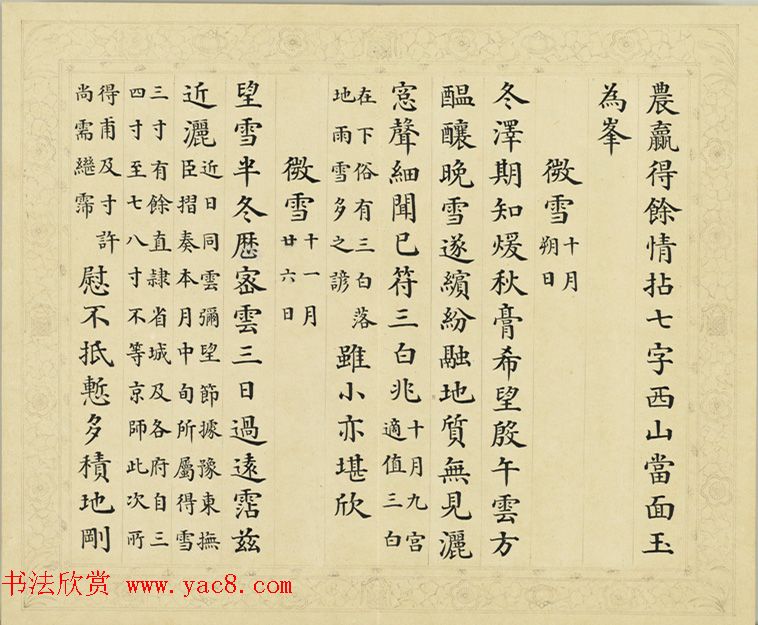 農贏得餘情拈七字西山當面玉
為峯
微雪十月朔日
冬澤期知煖秋膏希望殷午雲方
醞釀晚雪遂繽紛融地質無見灑
窓聲細聞已符三白兆十月九宮適值三白
在下俗有三白落地雨雪多之諺雖小亦堪欣
微雪十一月廿六日
望雪半冬歷密雲三日過遠霑茲
近灑近日同雲彌望節據豫東撫臣摺奏本月中旬所屬得雪
三寸有餘直隸省城及各府自三四寸至七八寸不等京師此次所
得甫及寸許尚需繼霈慰不抵慙多積地剛
书法欣赏 www.yac8.com